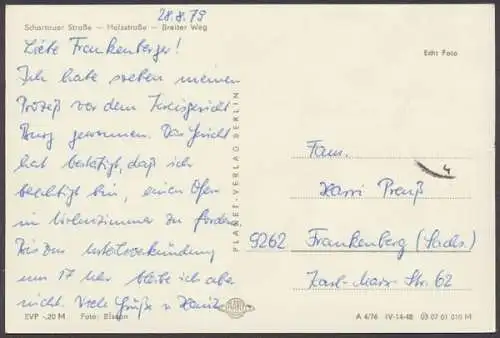 28.8.79
Schartauer Straße — Holzstraße — Breiter Weg
Liebe Frankenberger!
Ich habe soeben meinen
Prozeß vor dem Kreisgericht
Burg gewonnen. Das Gericht
hat bestätigt, daß ich
berechtigt bin, einen Ofen
im Wohnzimmer zu fordern.
Bis zur Urteilsverkündung
um 17 Uhr bleibe ich aber
nicht. Viele Grüße v.
EVP -,20 M Foto: Bissan
PLANET-VERLAG BERLIN
Echt Foto
Fam.
Harri Preuß
9262 Frankenberg (Sachs.)
Karl-Marx-Str. 62
A 4/76 IV-14-48 03 07 01 010 M